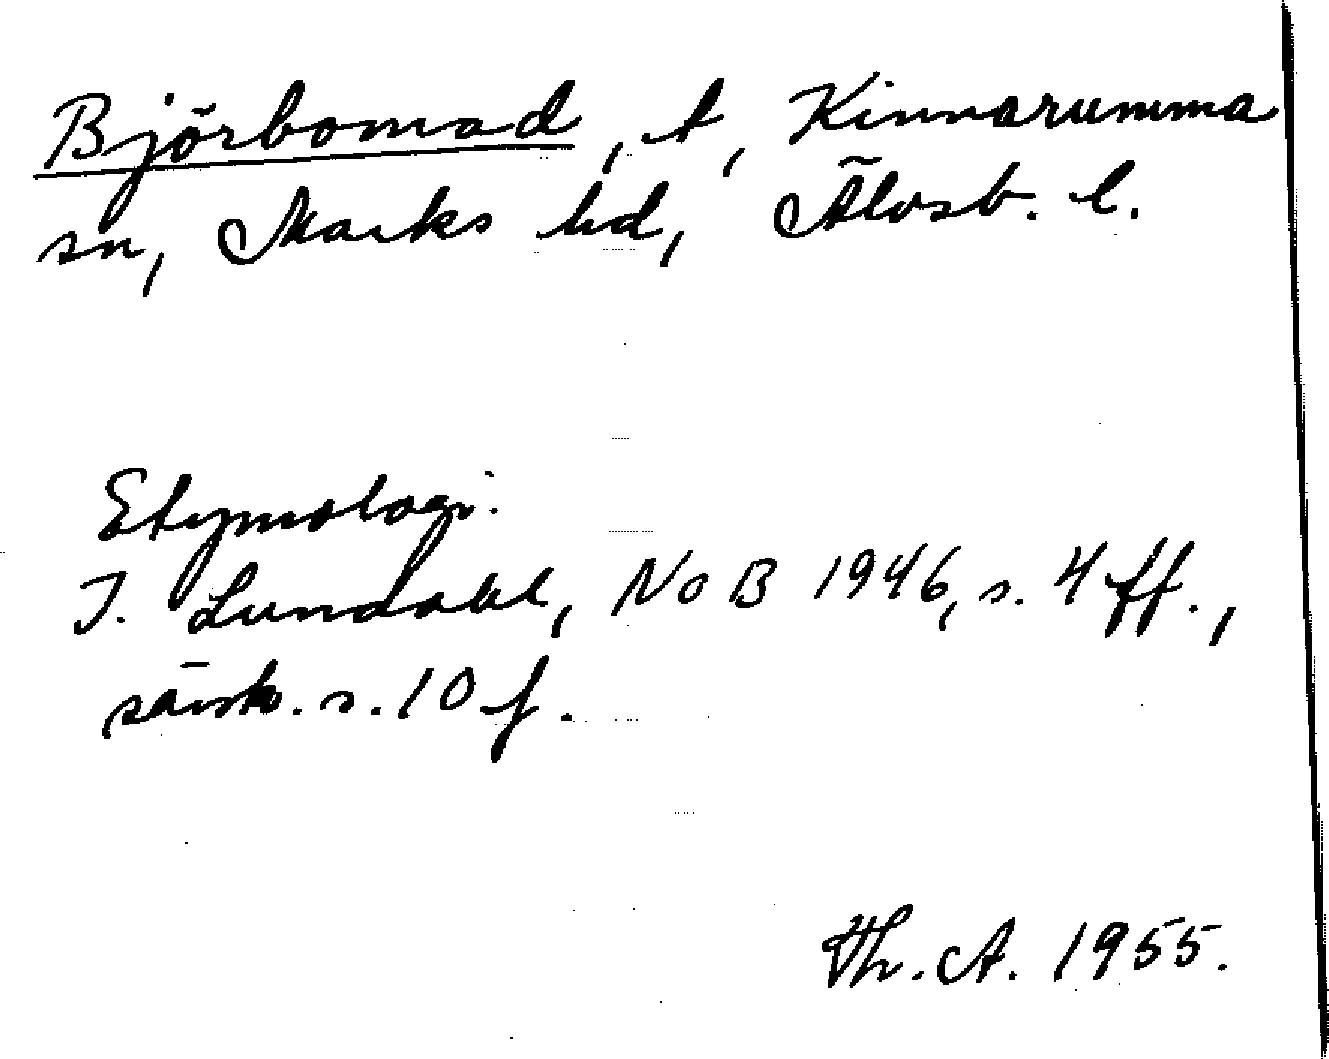 Björbomad, t, Kinnarumma
sn, Marks hd, Älvsb. l.
Etymologi.
I. Lundahl, NoB 1946, s. 4 ff.,
särsk. s. 10 f.
Th. A. 1955.